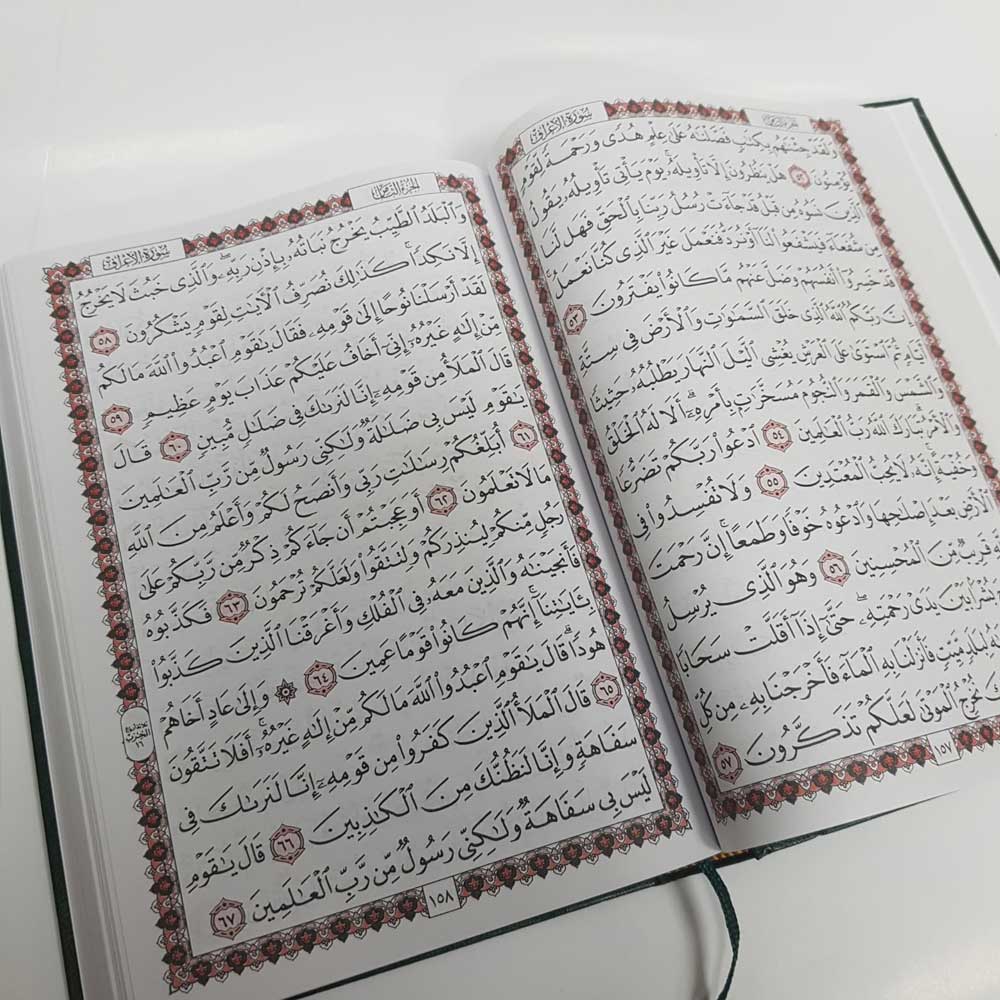 سورة الأعراف
الجزء الثامن
ولقد جئنهم بكتب فصلنه على علم هدى ورحمة لقوم
يؤمنون ٥٢ هل ينظرون إلا تأويله يوم يأتي تأويله يقول
الذين نسوه من قبل قد جاءت رسل ربنا بالحق فهل لنا
من شفعاء فيشفعوا لنا أو نرد فنعمل غير الذي كنا نعمل
قد خسروا أنفسهم وضل عنهم ما كانوا يفترون ٥٣
إن ربكم الله الذي خلق السموت والأرض في ستة
أيام ثم استوى على العرش يغشي اليل النهار يطلبه حثيثا
والشمس والقمر والنجوم مسخرت بأمره ألا له الخلق
والأمر تبارك الله رب العلمين ٥٤ ادعوا ربكم تضرعا
وخفية إنه لا يحب المعتدين ٥٥ ولا تفسدوا في
الأرض بعد إصلحها وادعوه خوفا وطمعا إن رحمت
قريب من المحسنين ٥٦ وهو الذي يرسل
بشرا بين يدي رحمته حتى إذا أقلت سحابا
لبلد ميت فأنزلنا به الماء فأخرجنا به من كل
نخرج الموتى لعلكم تذكرون ٥٧
١٥٧
الجزء الثامن
سورة الأعراف
والبلد الطيب يخرج نباته بإذن ربه والذي خبث لا يخرج
إلا نكدا كذلك نصرف الأيت لقوم يشكرون ٥٨
لقد أرسلنا نوحا إلى قومه فقال يقوم اعبدوا الله ما لكم
من إله غيره إني أخاف عليكم عذاب يوم عظيم ٥٩
قال الملأ من قومه إنا لنرىك في ضلل مبين ٦٠ قال
يقوم ليس بي ضللة ولكني رسول من رب العلمين
٦١ أبلغكم رسلت ربي وأنصح لكم وأعلم من الله
ما لا تعلمون ٦٢ أوعجبتم أن جاءكم ذكر من ربكم على
رجل منكم لينذركم ولتتقوا ولعلكم ترحمون ٦٣ فكذبوه
فأنجينه والذين معه في الفلك وأغرقنا الذين كذبوا
بءايتنا إنهم كانوا قوما عمين ٦٤ ۞ وإلى عاد أخاهم
هودا قال يقوم اعبدوا الله ما لكم من إله غيره أفلا تتقون
٦٥ قال الملأ الذين كفروا من قومه إنا لنرىك في
سفاهة وإنا لنظنك من الكذبين ٦٦ قال يقوم
ليس بي سفاهة ولكني رسول من رب العلمين ٦٧
١٥٨